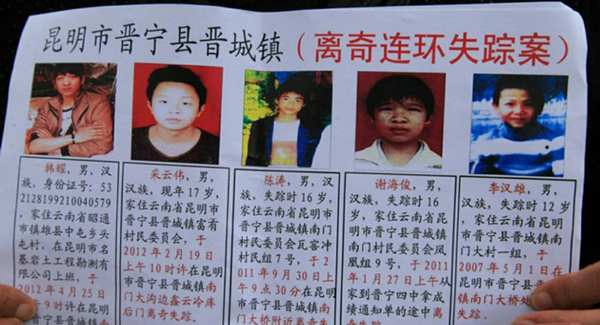 昆明市晋宁县晋城镇（离奇连环失踪案）
韩耀，男，汉
族，身份证号：53
2128199210040579
，家住云南省昭通
市镇雄县中屯乡头
屯村，在昆明市名
基岩土工程勘测有
限公司上班，于
2012年4月25日
9时许在昆明
采云伟，男，
汉族，现年17岁，
家住云南省昆明市
晋宁县晋城镇富有
村民委员会，于
2012年2月19日
上午10时许在昆明
市晋宁县晋城镇南
门大沟边鑫云冷库
后门离奇失踪。
陈涛，男，汉
族，失踪时16岁，
家住云南省昆明市
晋宁县晋城镇南门
村民委员会瓦窑冲
村民组7号，于2
011年9月30日上
午9点30分在昆明
市晋宁县晋城镇
南门大桥附近离奇失
谢海俊，男，
汉族，失踪时16岁
，家住云南省昆明
市晋宁县晋城镇南
门村民委员会凤
凰组9号，于2011
年1月27日上午从
家到晋宁四中拿成
绩通知单的途中
离奇失踪
李汉雄，男，
汉族，失踪时12岁
，家住云南省昆明
市晋宁县晋城镇南
门大村一组，于
2007年5月1日在
晋宁县晋城镇
南门大桥处
失踪。